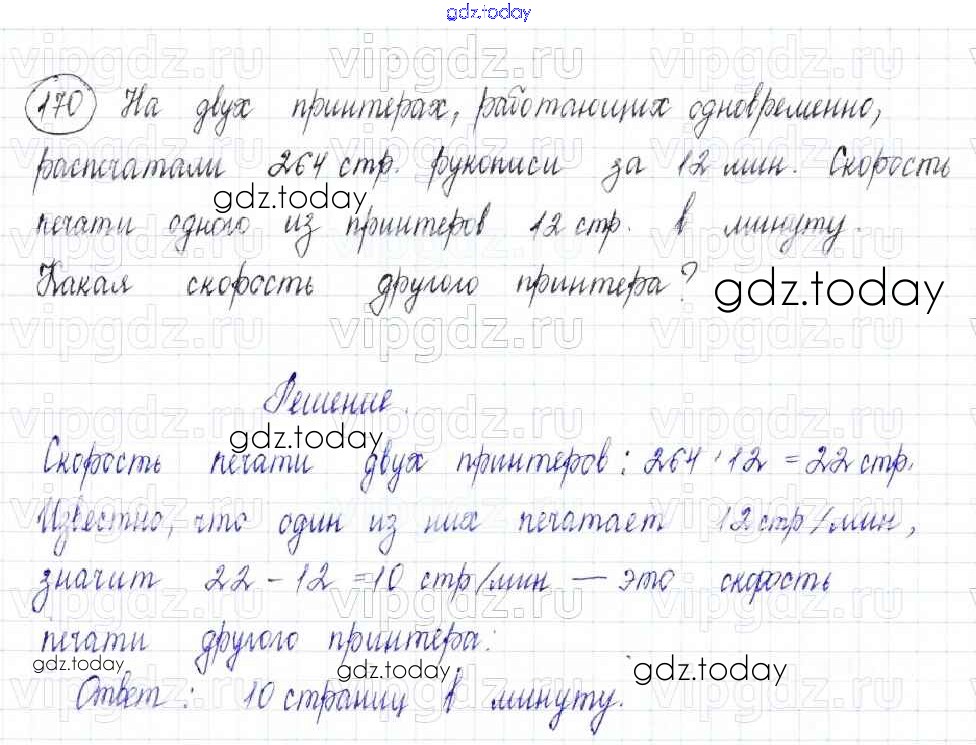 gdz.today
170 На двух принтерах, работающих одновременно,
распечатали 264 стр. рукописи за 12 мин. Скорость
gdz.today
печати одного из принтеров 12 стр. в минуту.
Какая скорость другого принтера?
gdz.today
Решение.
gdz.today
Скорость печати двух принтеров: 264 : 12 = 22 стр.
Известно, что один из них печатает 12 стр/мин,
значит 22 - 12 = 10 стр/мин — это скорость
печати другого принтера.
gdz.today gdz.today gdz.today
Ответ: 10 страниц в минуту.
vipgdz.ru vipgdz.ru vipgdz.ru